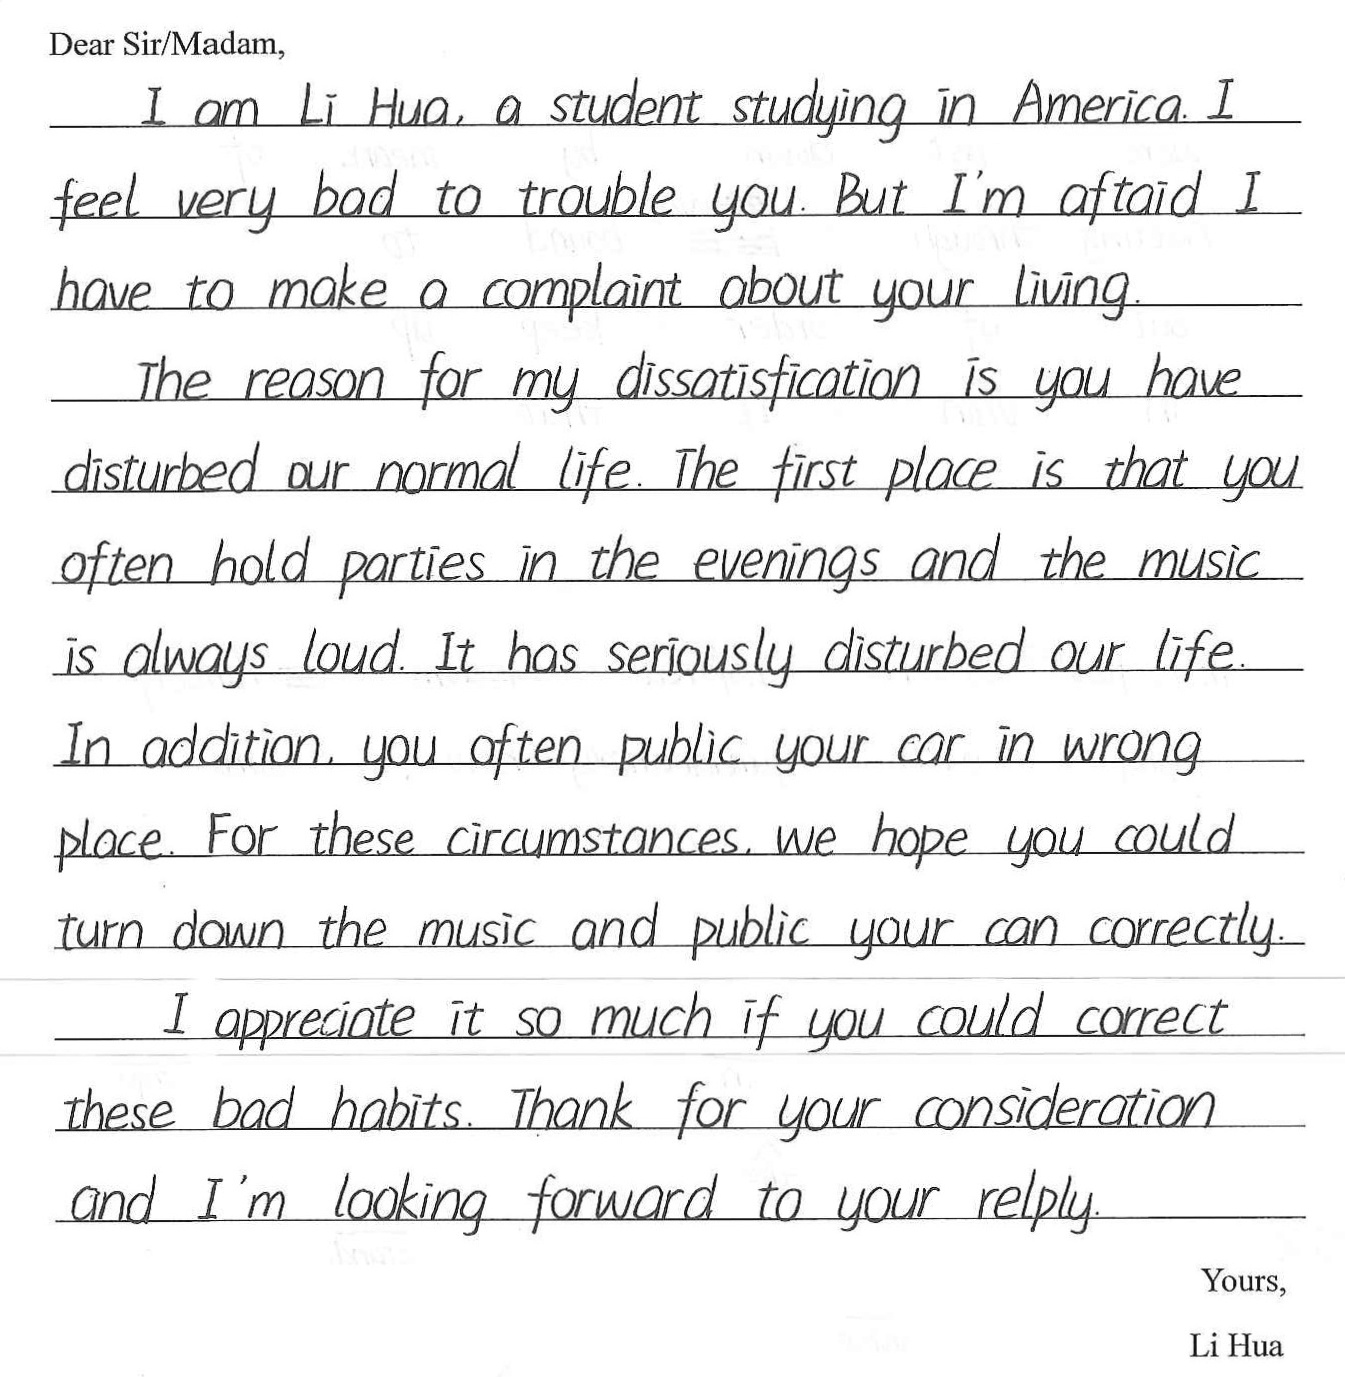 Dear Sir/Madam,
I am Li Hua, a student studying in America. I
feel very bad to trouble you. But I'm aftaid I
have to make a complaint about your living.
The reason for my dissatisfication is you have
disturbed our normal life. The first place is that you
often hold parties in the evenings and the music
is always loud. It has seriously disturbed our life.
In addition, you often public your car in wrong
place. For these circumstances, we hope you could
turn down the music and public your can correctly.
I appreciate it so much if you could correct
these bad habits. Thank for your consideration
and I'm looking forward to your relply.
Yours,
Li Hua